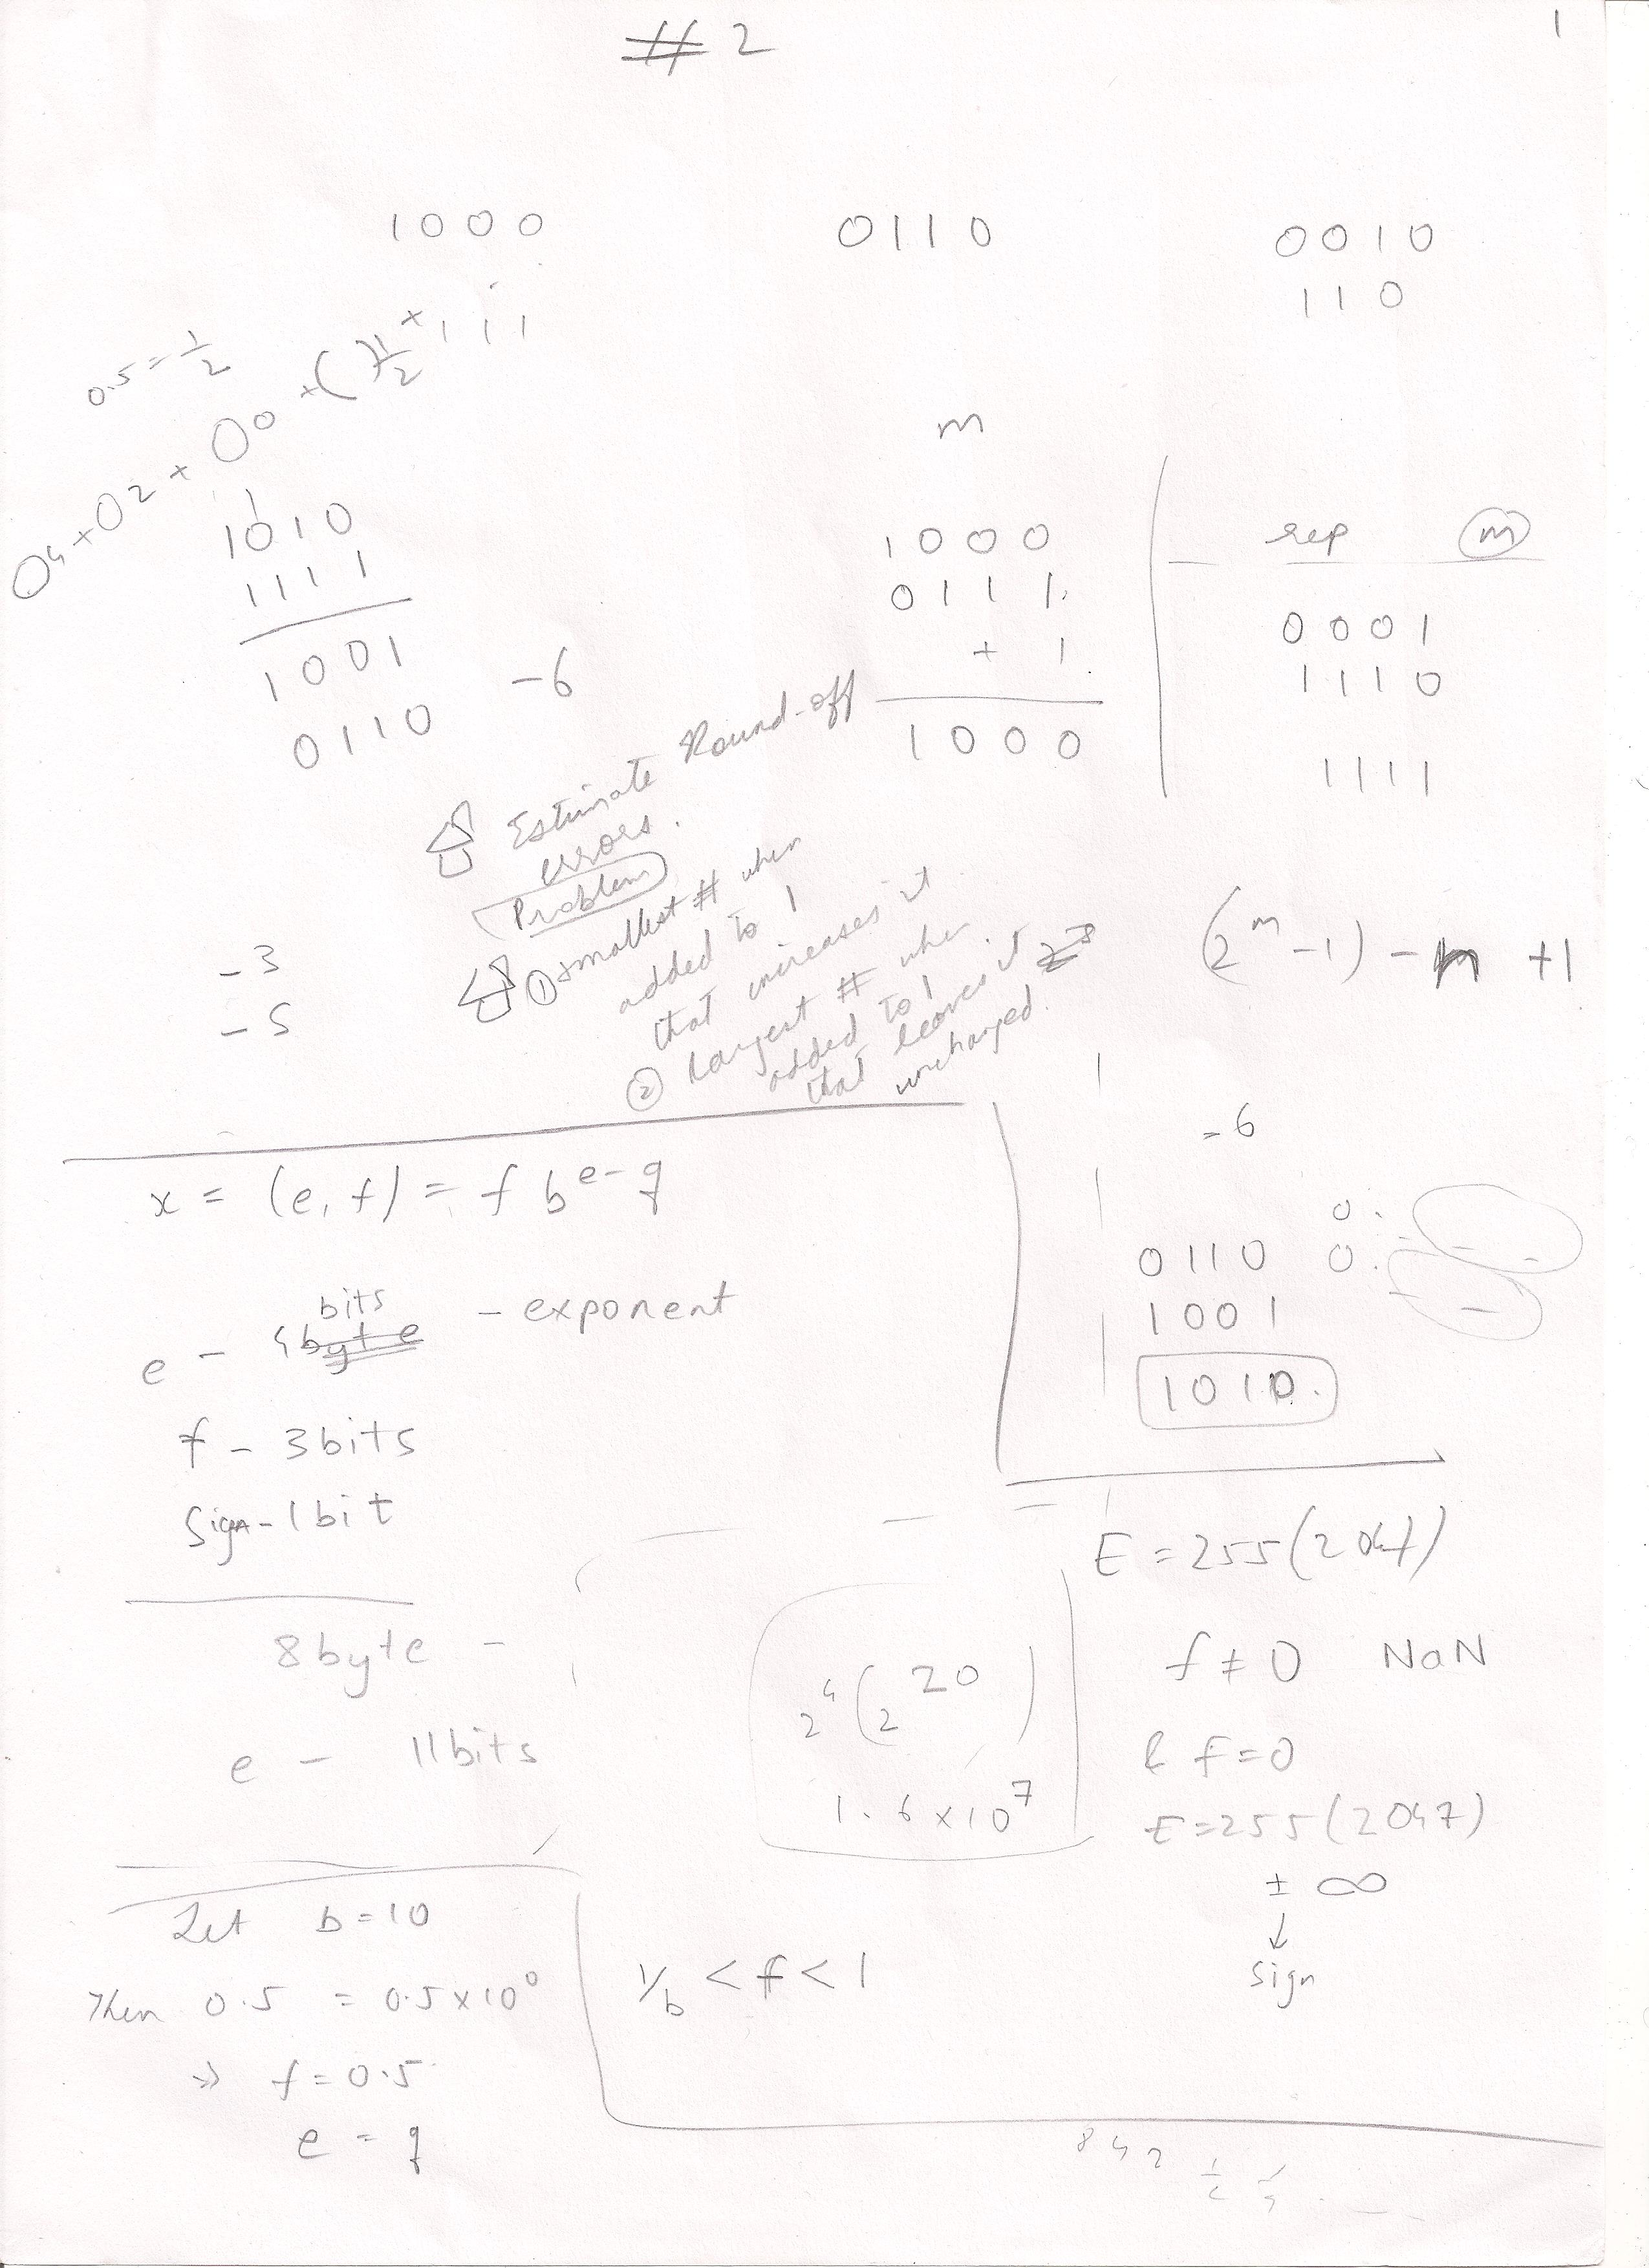 # 2
1
1000
0110
0010
110
0.5 = 1/2
m
1010
1111
1001
0110
-6
1000
0111
+ 1
1000
rep m
0001
1110
1111
Estimate Round-off
errors.
Problem
① smallest # when
added to 1
that increases it
② Largest # when
added to 1
that leaves it
unchanged.
(2^m - 1) - m + 1
-3
-5
-6
0110
1001
1010
x = (e, f) = f b^(e-q)
bits
e - 4byte - exponent
f - 3bits
Sign - 1bit
8byte -
e - 11bits
2^4 (2^20)
1.6 x 10^7
E = 255 (2047)
f ≠ 0 NaN
& f = 0
E = 255 (2047)
± ∞
↓
sign
Let b = 10
Then 0.5 = 0.5 x 10^0
⇒ f = 0.5
e = q
1/b < f < 1
8 4 2